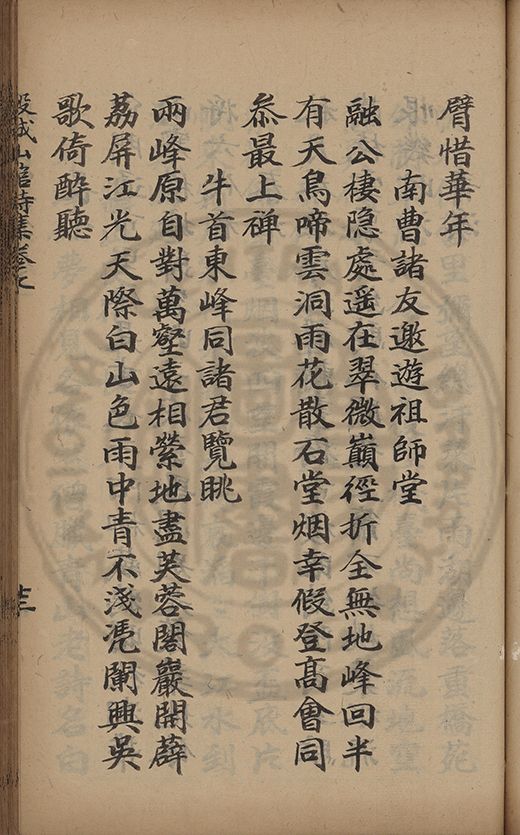 臂惜華年
南曹諸友邀遊祖師堂
融公棲隐處遥在翠微巔徑折全無地峰回半
有天鳥啼雲洞雨花散石堂烟幸假登髙會同
叅最上禅
牛首東峰同諸君覽眺
兩峰原自對萬壑遠相縈地盡芙蓉閣巖開薜
荔屏江光天際白山色雨中青不淺凭闌興吳
歌倚醉聽
十三